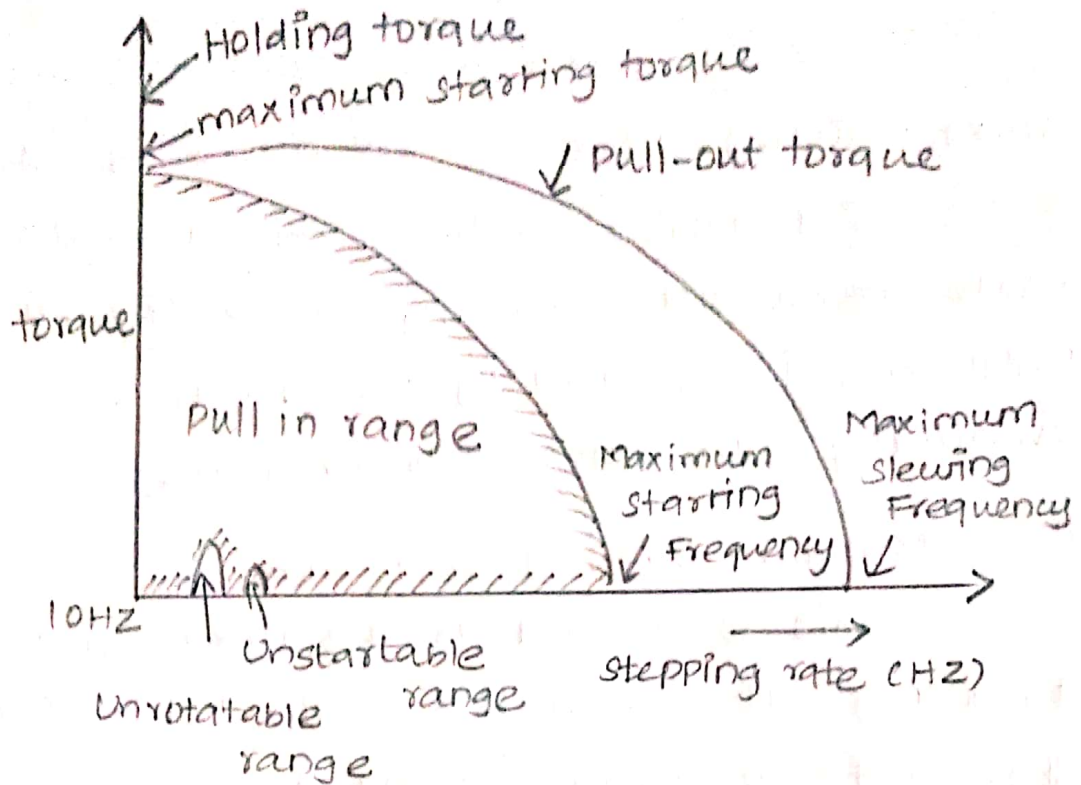 Holding torque
maximum starting torque
Pull-out torque
torque
Pull in range
Maximum
starting
Frequency
Maximum
slewing
Frequency
10HZ
Unstartable
range
Unrotatable
range
stepping rate (HZ)